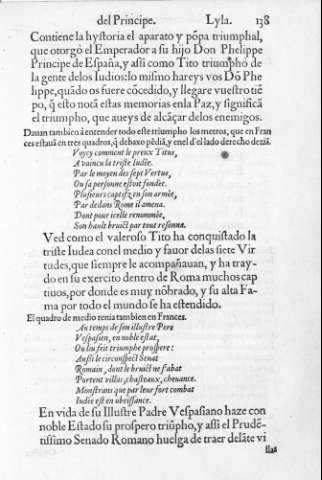 del Principe. Lyla. 138
Contiene la hyſtoria el aparato y põpa triumphal,
que otorgó el Emperador a ſu hijo Don Phelippe
Principe de Eſpaña, y aſsi como Tito triumphó de
la gente delos Iudios: lo miſmo hareys vos Dõ Phe
lippe, quãdo os fuere cõcedido, y llegare vueſtro tiẽ
po, q̃ eſto notã eſtas memorias enla Paz, y ſignificã
el triumpho, que aueys de alcãçar delos enemigos.
Dauan tambien à entender todo eſte triumpho los metros, que en Fran
ces eſtauã en tres quadros, q̃ debaxo pẽdiã, y enel d'el lado derecho dezia.
Voycy comment le preux Titus,
A vaincu la triſte Iudée.
Par le moyen des ſept Vertus,
Ou ſa perſonne eſtoit fondée.
Pluſieurs captifz en ſon armée,
Par dedans Rome il amena.
Dont pour icelle renommée,
Son hault bruict par tout reſonna.
Ved como el valeroſo Tito ha conquiſtado la
triſte Iudea conel medio y fauor delas ſiete Vir
tudes, que ſiempre le acompañauan, y ha tray-
do en ſu exercito dentro de Roma muchos cap
tiuos, por donde es muy nõbrado, y ſu alta Fa-
ma por todo el mundo ſe ha eſtendido.
El quadro de medio tenia tambien en Frances.
Au temps de ſon illuſtre Pere
Veſpaſian, en noble eſtat,
Ou liu feit triumphe proſpere:
Auſsi le circonſpect Senat
Romain, dont le bruict ne ſ'abat
Portent villes, chaſteaux, cheuance.
Monſtrans que par leur fort combat
Iudée eſt en obeiſſance.
En vida de ſu Illuſtre Padre Veſpaſiano haze con
noble Eſtado ſu proſpero triũpho, y aſsi el Prudẽ-
tiſsimo Senado Romano huelga de traer delãte vi
llas